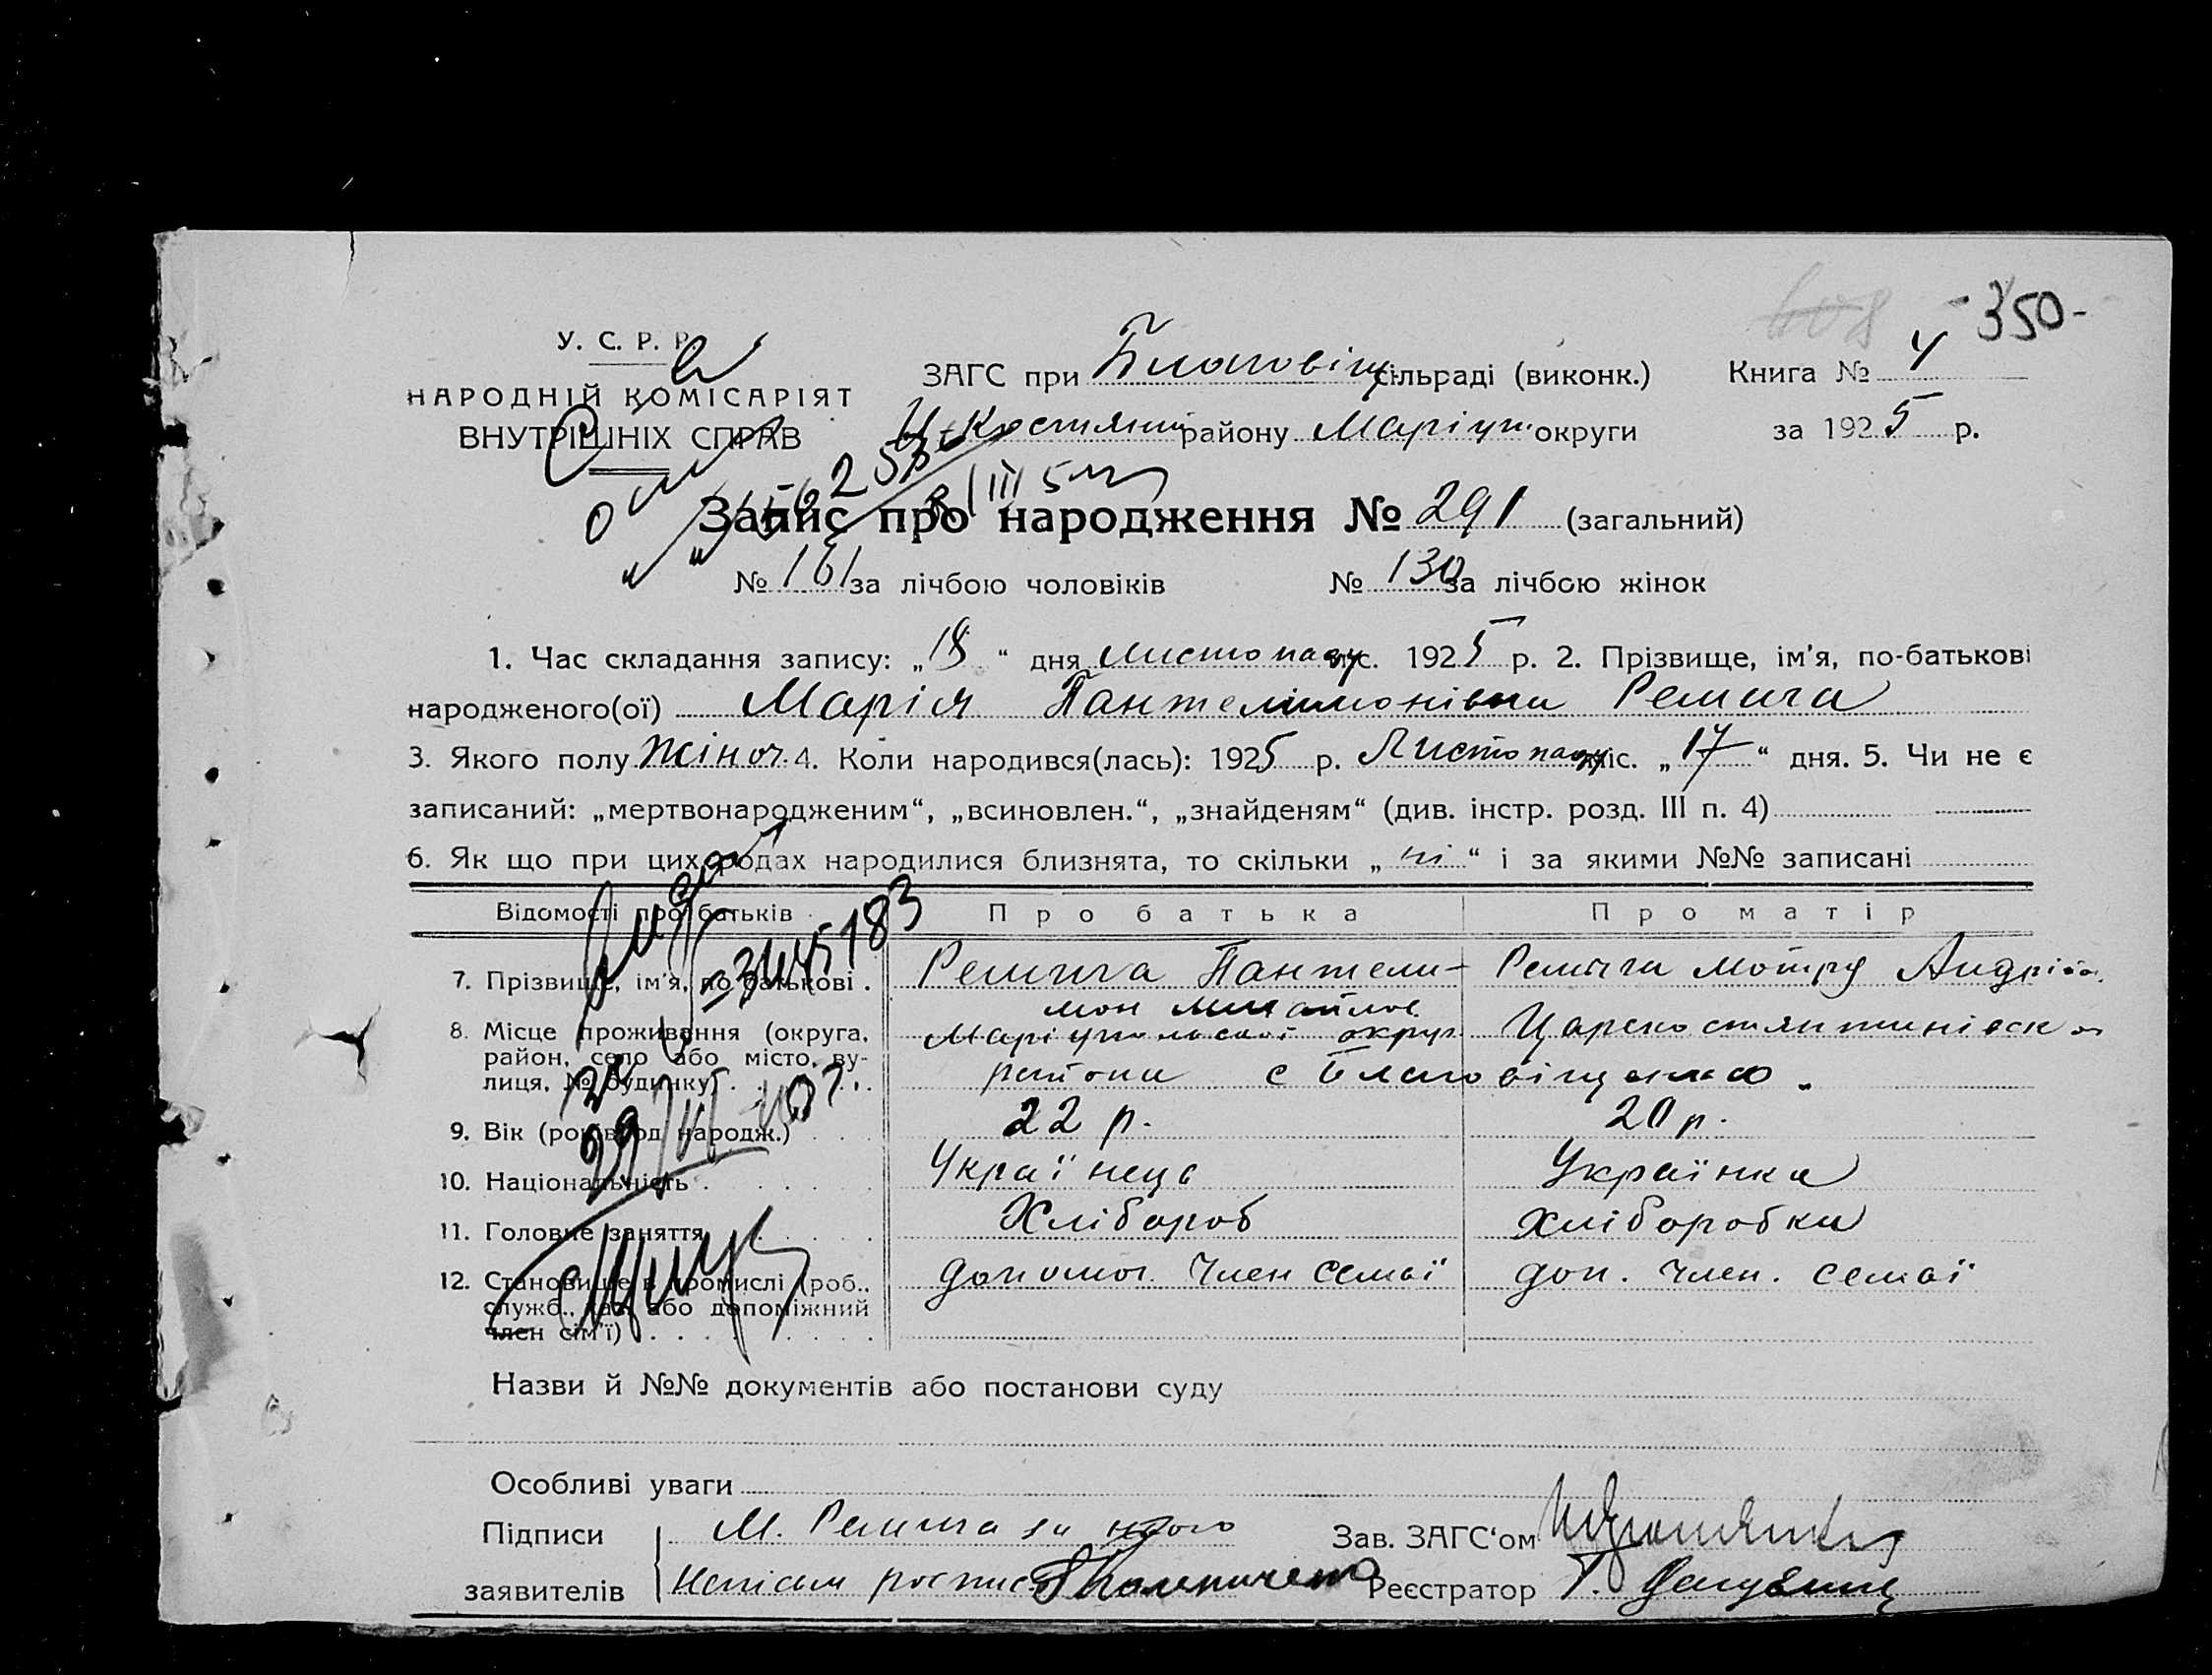 608 - 350 -
У. С. Р. Р.
НАРОДНІЙ КОМІСАРІЯТ
ВНУТРІШНІХ СПРАВ
ЗАГС при Благовіщ. сільраді (виконк.) Книга № 4
Ц-Костянт району Маріуп. округи за 1925 р.
Запис про народження № 291 (загальний)
№ 161 за лічбою чоловіків № 130 за лічбою жінок
1. Час складання запису: „18“ дня Листопаду міс. 1925 р. 2. Прізвище, ім’я, по-батькові
народженого(ої) Марія Пантелимонівна Ремига
3. Якого полу жіноч. 4. Коли народився(лась): 1925 р. Листопаду міс. „17“ дня. 5. Чи не є
записаний: „мертвонародженим“, „всиновлен.“, „знайденям“ (див. інстр. розд. III п. 4)
6. Як що при цих родах народилися близнята, то скільки „ні“ і за якими №№ записані
Відомості про батьків Про батька Про матір
7. Прізвище, ім’я, по батькові . Ремига Пантели- Ремига Мотря Андріїв.
мон Михайлов
8. Місце проживання (округа, Маріупольської округ Царекостянтинівськ
район, село або місто, ву-
лиця, № будинку) района с Благовіщенка.
9. Вік (рок. від народж.) 22 р. 20 р.
10. Національність Українець Українка
11. Головне заняття Хлібороб Хліборобка
12. Становище в промислі (роб., допомог. член семьї доп. член. семьї
служб., хаз. або допоміжний
член сім’ї)
Назви й №№ документів або постанови суду
Особливі уваги
Підписи М. Ремига за нього Зав. ЗАГС‘ом
заявителів Реєстратор Т.